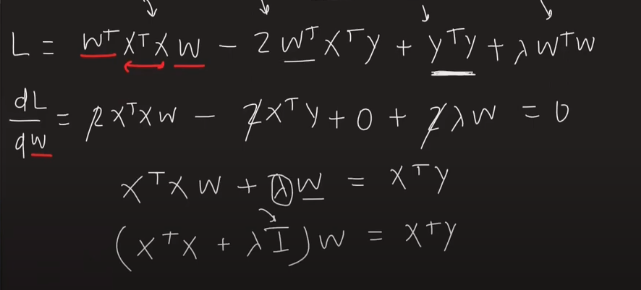 L = Wᵀ XᵀX W − 2 Wᵀ Xᵀ Y + YᵀY + λ WᵀW
dL/dW = 2XᵀXW − 2XᵀY + 0 + 2λW = 0
XᵀXW + λW = XᵀY
(XᵀX + λI)W = XᵀY